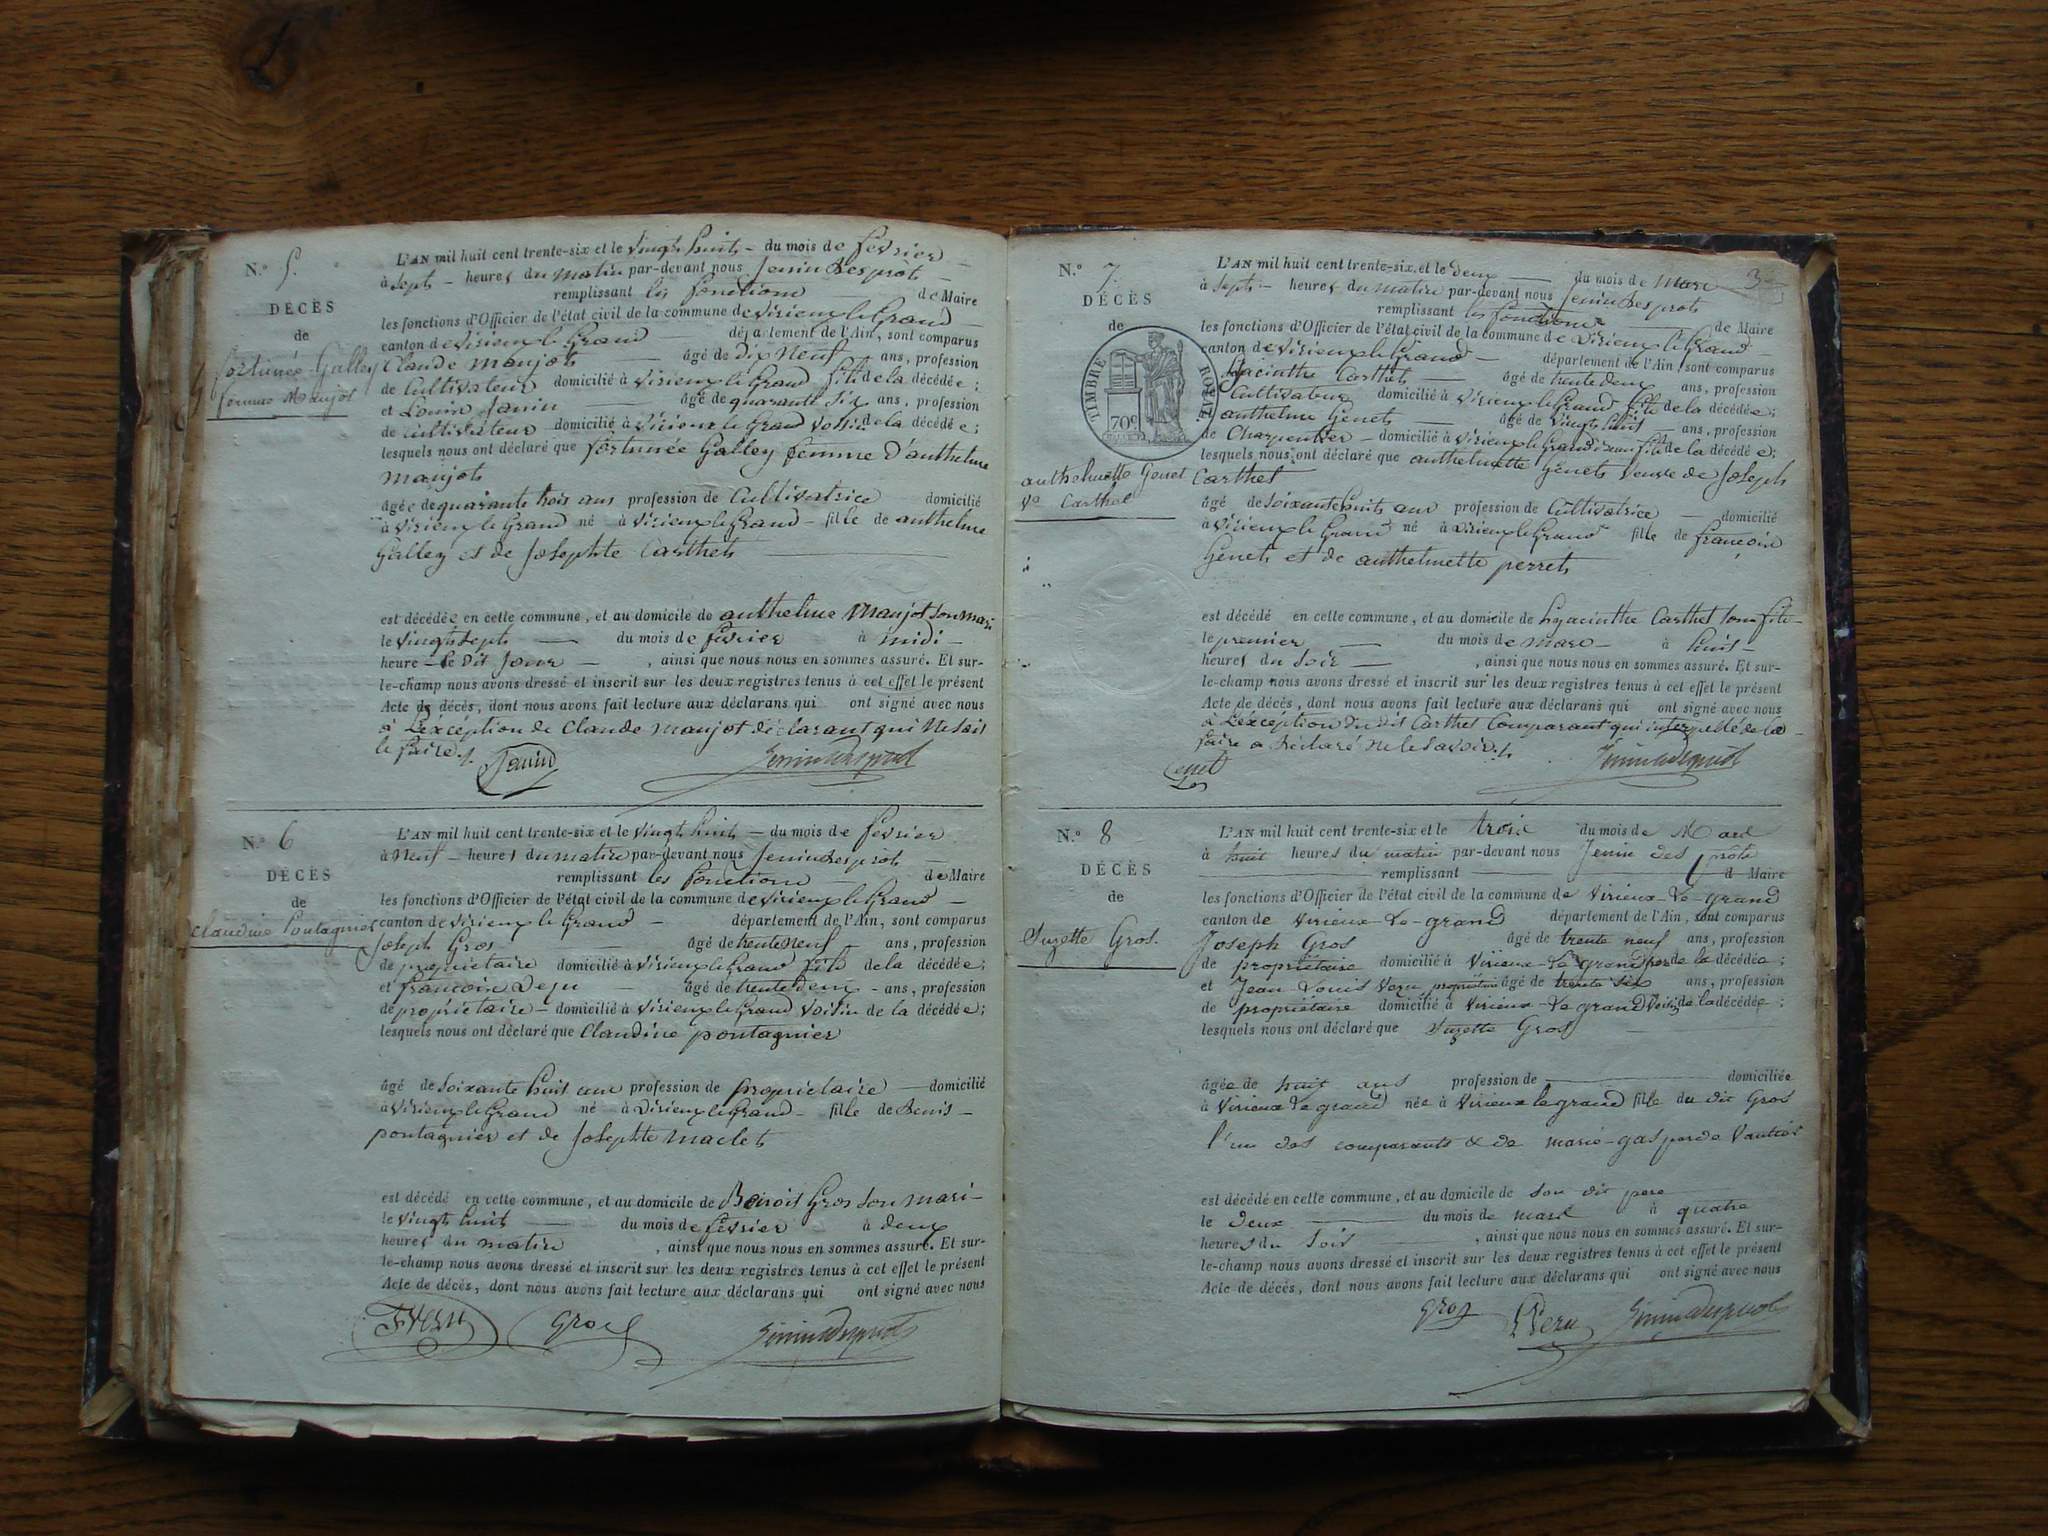 N.º 5.
DÉCÈS
de
fortunée Galley
femme Maujot
L'AN mil huit cent trente-six et le vingt huit du mois de février
à sept heures du matin par-devant nous Jenin Desprôt
remplissant les fonctions de Maire
les fonctions d'Officier de l'état civil de la commune de virieux le Grand
canton de virieux le Grand département de l'Ain, sont comparus
Claude Maujot âgé de dix neuf ans, profession
de Cultivateur domicilié à virieux le Grand fils de la décédée;
et Louis Janin âgé de quarante six ans, profession
de Cultivateur domicilié à virieux le Grand voisin de la décédée;
lesquels nous ont déclaré que fortunée Galley femme d'anthelme
Maujot
âgée de quarante trois ans profession de Cultivatrice domicilié
à virieux le Grand né à virieux le Grand fille de anthelme
Galley et de Josephte Carthet
est décédée en cette commune, et au domicile de anthelme Maujot son mari
le vingt sept du mois de février à midi
heure le dit jour, ainsi que nous nous en sommes assuré. Et sur-
le-champ nous avons dressé et inscrit sur les deux registres tenus à cet effet le présent
Acte de décès, dont nous avons fait lecture aux déclarans qui ont signé avec nous
à L'éxception de Claude Maujot déclarant qui ne sait
le faire./.
Janin Jenindesprôt
N.º 6
DÉCÈS
de
Claudine Pontagnier
L'AN mil huit cent trente-six et le vingt huit du mois de février
à Neuf heures du matin par-devant nous Jenin Desprôt
remplissant les fonctions de Maire
les fonctions d'Officier de l'état civil de la commune de virieux le Grand
canton de virieux le Grand département de l'Ain, sont comparus
Joseph Gros âgé de trente neuf ans, profession
de propriétaire domicilié à virieux le Grand fils de la décédée;
et françois âgé de trente deux ans, profession
de propriétaire domicilié à virieux le Grand voisin de la décédée;
lesquels nous ont déclaré que Claudine pontagnier
âgé de Soixante huit ans profession de propriétaire domicilié
à virieux le Grand né à virieux le Grand fille de Denis
pontagnier et de Josephte Maclet
est décédé en cette commune, et au domicile de Benoit Gros son mari
le vingt huit du mois de février à deux
heures du matin, ainsi que nous nous en sommes assuré. Et sur-
le-champ nous avons dressé et inscrit sur les deux registres tenus à cet effet le présent
Acte de décès, dont nous avons fait lecture aux déclarans qui ont signé avec nous
Gros Jenindesprôt
3
N.º 7.
DÉCÈS
de
TIMBRE ROYAL
70c
anthelmette Genet
Ve Carthet
L'AN mil huit cent trente-six et le deux du mois de Mars
à Sept heures du matin par-devant nous Jenin Desprôt
remplissant les fonctions de Maire
les fonctions d'Officier de l'état civil de la commune de virieux le Grand
canton de virieux le Grand département de l'Ain, sont comparus
hyacinthe Carthet âgé de trente deux ans, profession
Cultivateur domicilié à virieux le Grand fils de la décédée;
anthelme Genet âgé de vingt huit ans, profession
de Charpentier domicilié à virieux le Grand de la décédée;
lesquels nous ont déclaré que anthelmette Genet veuve de Joseph
Carthet
âgé de Soixante huit ans profession de Cultivatrice domicilié
à virieux le Grand né à virieux le Grand fille de françois
Genet et de anthelmette perret
est décédé en cette commune, et au domicile de hyacinthe Carthet son fils
le premier du mois de Mars à huit
heures du Soir, ainsi que nous nous en sommes assuré. Et sur-
le-champ nous avons dressé et inscrit sur les deux registres tenus à cet effet le présent
Acte de décès, dont nous avons fait lecture aux déclarans qui ont signé avec nous
à L'éxception du dit Carthet Comparant qui interpellé de le
faire a déclaré ne le Savoir./.
Genet Jenindesprôt
N.º 8
DÉCÈS
de
Suzette Gros.
L'AN mil huit cent trente-six et le trois du mois de Mars
à huit heures du matin par-devant nous Jenin des prôts
remplissant d Maire
les fonctions d'Officier de l'état civil de la commune de Virieux-Le-grand
canton de Virieux-Le-grand département de l'Ain, sont comparus
Joseph Gros âgé de trente neuf ans, profession
de propriétaire domicilié à Virieux-Le-grand père de la décédée;
et Jean Louis Veru propriétaire âgé de trente six ans, profession
de propriétaire domicilié à Virieux-Le-grand voisin de la décédée;
lesquels nous ont déclaré que Suzette Gros
âgée de huit ans profession de domiciliée
à Virieux Le grand née à Virieux le grand fille du dit Gros
l'un des comparants & de marie-gasparde Vautier
est décédé en cette commune, et au domicile de son dit père
le deux du mois de mars à quatre
heures du Soir, ainsi que nous nous en sommes assuré. Et sur-
le-champ nous avons dressé et inscrit sur les deux registres tenus à cet effet le présent
Acte de décès, dont nous avons fait lecture aux déclarans qui ont signé avec nous
Gros Veru Jenindesprôt